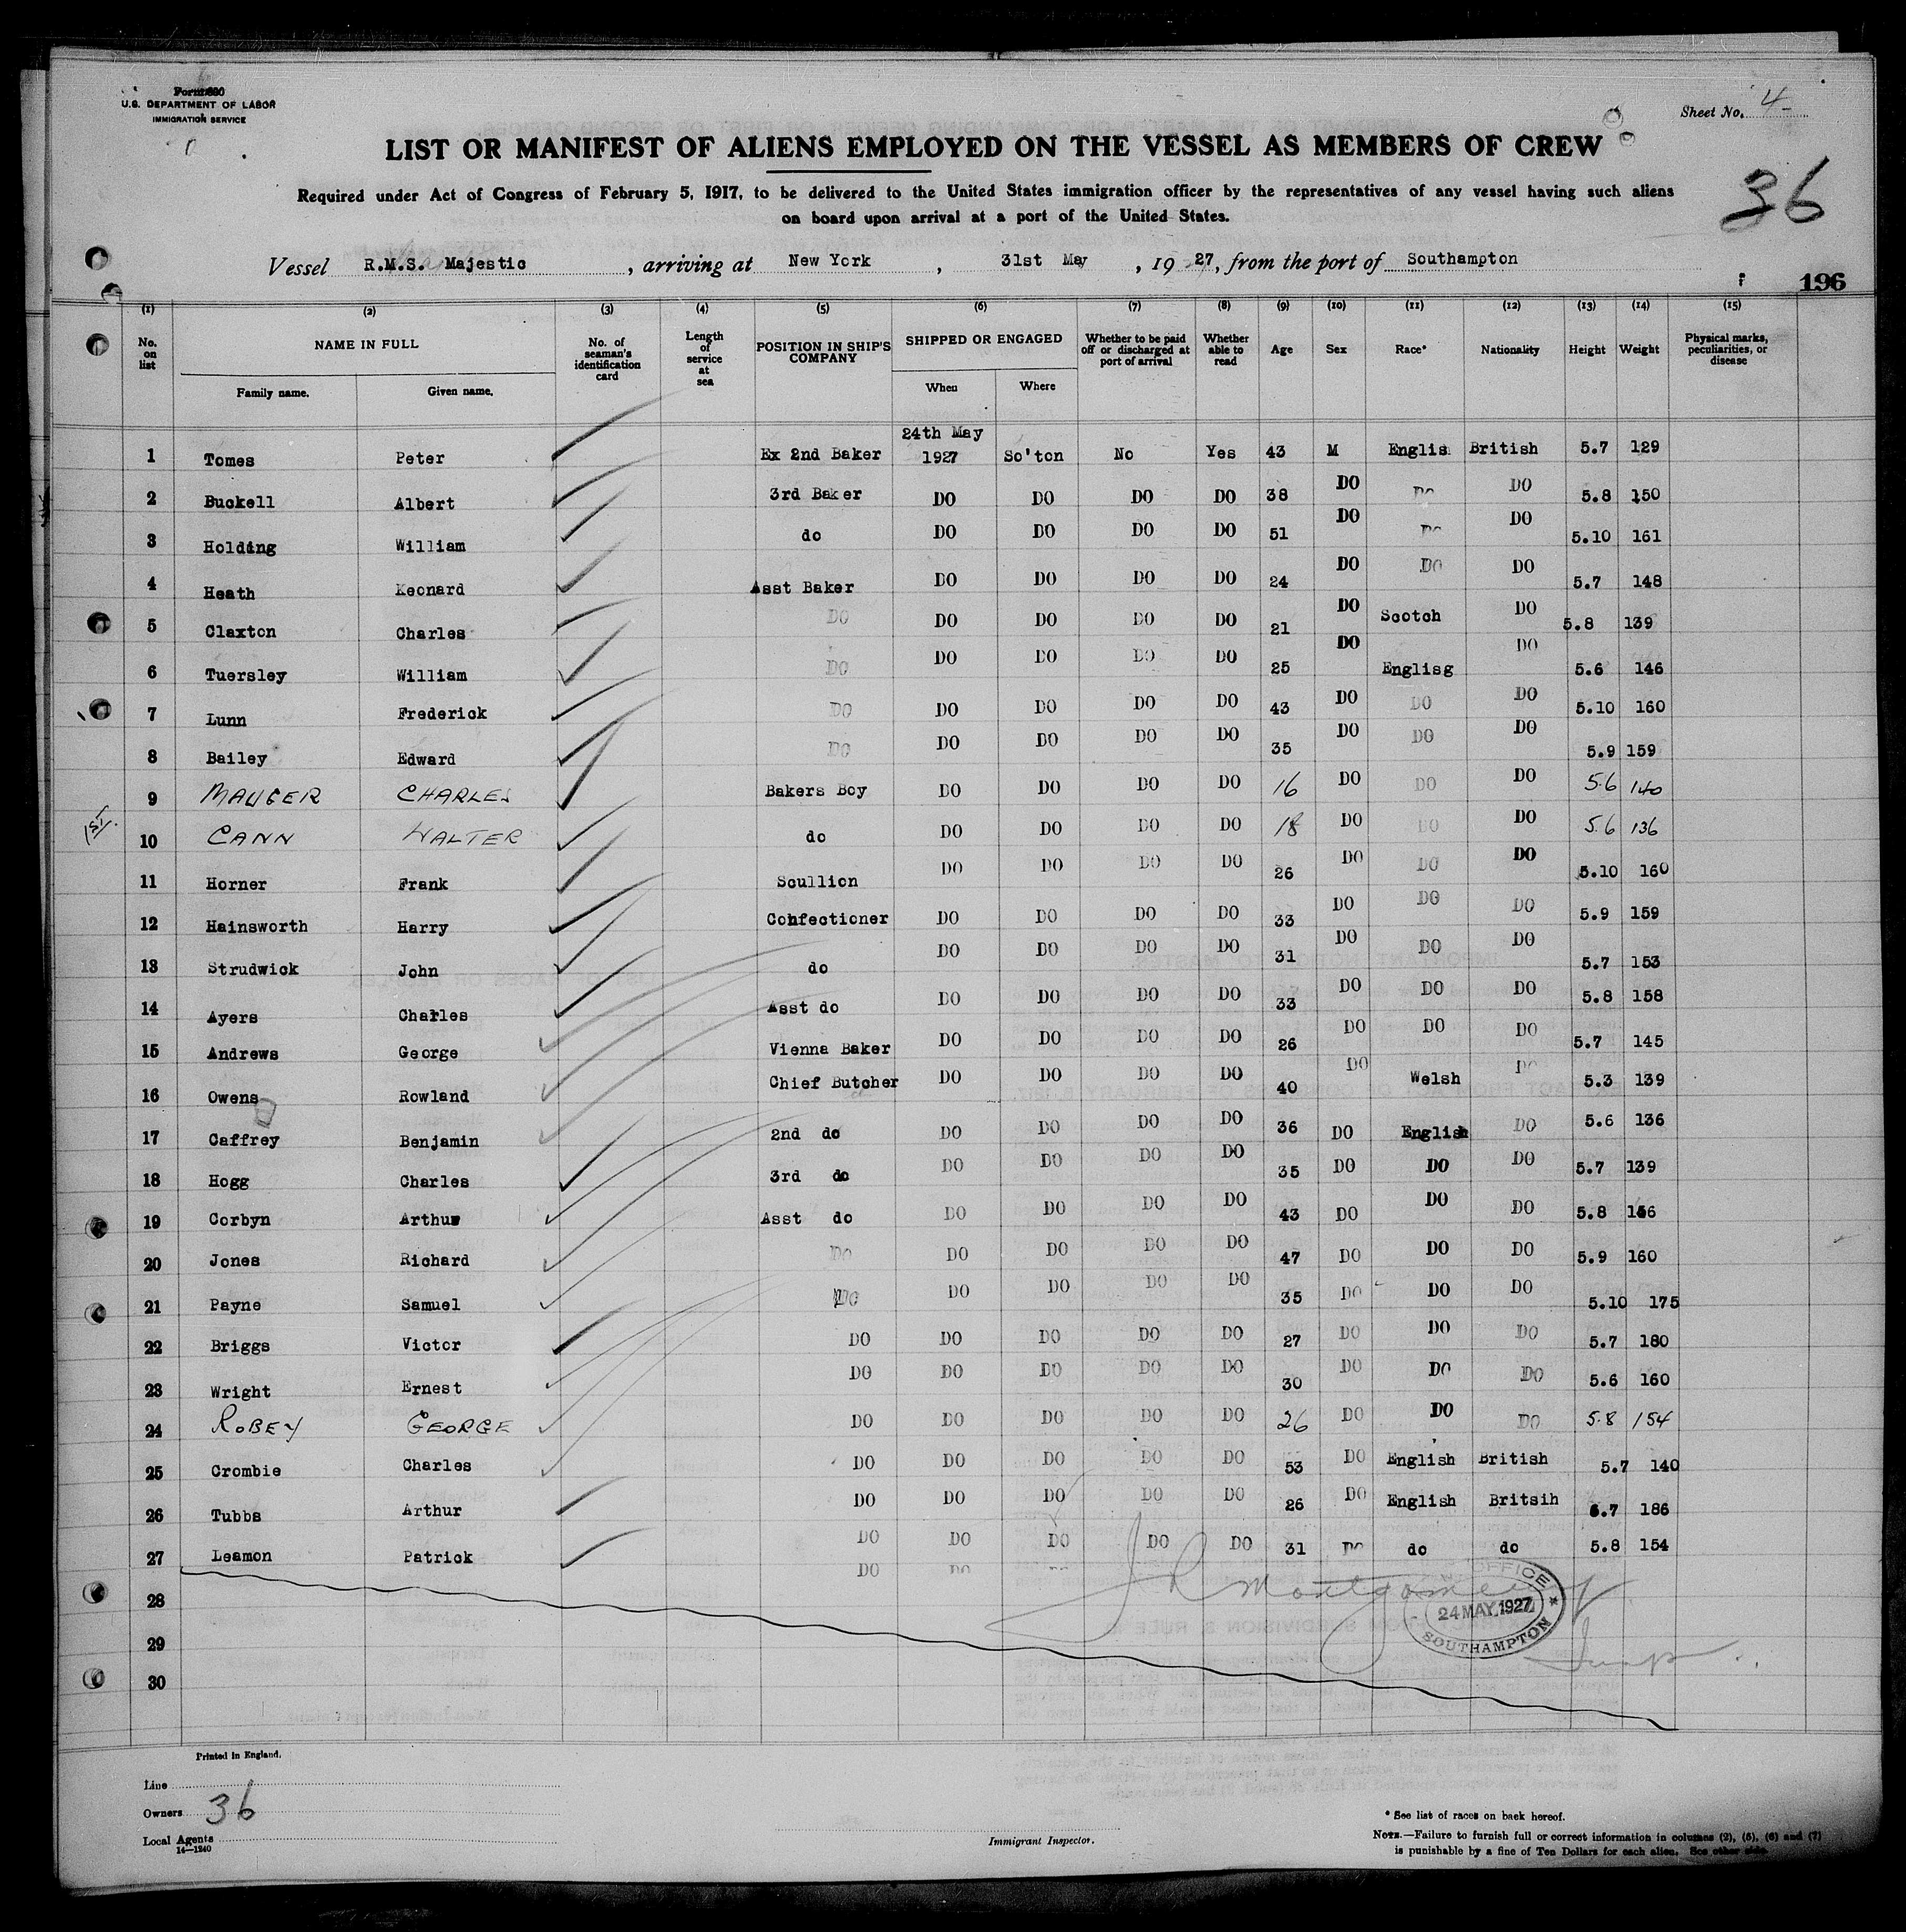 Form 680
U.S. DEPARTMENT OF LABOR
IMMIGRATION SERVICE
Sheet No. 4
LIST OR MANIFEST OF ALIENS EMPLOYED ON THE VESSEL AS MEMBERS OF CREW
Required under Act of Congress of February 5, 1917, to be delivered to the United States immigration officer by the representatives of any vessel having such aliens
on board upon arrival at a port of the United States.
36
Vessel R.M.S. Majestic, arriving at New York, 31st May, 1927, from the port of Southampton
196
(1) (2) (3) (4) (5) (6) (7) (8) (9) (10) (11) (12) (13) (14) (15)
No. on list NAME IN FULL No. of seaman's identification card Length of service at sea POSITION IN SHIP'S COMPANY SHIPPED OR ENGAGED Whether to be paid off or discharged at port of arrival Whether able to read Age Sex Race* Nationality Height Weight Physical marks, peculiarities, or disease
Family name. Given name. When Where
1 Tomes Peter Ex 2nd Baker 24th May 1927 So'ton No Yes 43 M Englis British 5.7 129
2 Buckell Albert 3rd Baker DO DO DO DO 38 DO DO DO 5.8 150
3 Holding William do DO DO DO DO 51 DO DO DO 5.10 161
4 Heath Keonard Asst Baker DO DO DO DO 24 DO DO DO 5.7 148
5 Claxton Charles DO DO DO DO DO 21 DO Scotch DO 5.8 139
6 Tuersley William DO DO DO DO DO 25 DO Englisg DO 5.6 146
7 Lunn Frederick DO DO DO DO DO 43 DO DO DO 5.10 160
8 Bailey Edward DO DO DO DO DO 35 DO DO DO 5.9 159
9 MAUGER CHARLES Bakers Boy DO DO DO DO 16 DO DO DO 5.6 140
1st.
10 CANN WALTER do DO DO DO DO 18 DO DO DO 5.6 136
11 Horner Frank Scullion DO DO DO DO 26 DO DO DO 5.10 160
12 Hainsworth Harry Confectioner DO DO DO DO 33 DO DO DO 5.9 159
13 Strudwick John do DO DO DO DO 31 DO DO DO 5.7 153
14 Ayers Charles Asst do DO DO DO DO 33 DO DO DO 5.8 158
15 Andrews George Vienna Baker DO DO DO DO 26 DO DO DO 5.7 145
16 Owens Rowland Chief Butcher DO DO DO DO 40 DO Welsh DO 5.3 139
17 Caffrey Benjamin 2nd do DO DO DO DO 36 DO English DO 5.6 136
18 Hogg Charles 3rd do DO DO DO DO 35 DO DO DO 5.7 139
19 Corbyn Arthur Asst do DO DO DO DO 43 DO DO DO 5.8
20 Jones Richard DO DO DO DO DO 47 DO DO DO 5.9 160
21 Payne Samuel DO DO DO DO DO 35 DO DO DO 5.10 175
22 Briggs Victor DO DO DO DO DO 27 DO DO DO 5.7 180
23 Wright Ernest DO DO DO DO DO 30 DO DO DO 5.6 160
24 ROBEY GEORGE DO DO DO DO DO 26 DO DO DO 5.8 154
25 Crombie Charles DO DO DO DO DO 53 DO English British 5.7 140
26 Tubbs Arthur DO DO DO DO DO 26 DO English Britsih 5.7 186
27 Leamon Patrick DO DO DO DO DO 31 DO do do 5.8 154
DO DO
28
J R Montgomery
OFFICE
24 MAY 1927
SOUTHAMPTON
29
30
Printed in England.
Line
Owners 36
Local Agents
14—1240
Immigrant Inspector.
* See list of races on back hereof.
NOTE.—Failure to furnish full or correct information in columns (2), (5), (6) and (7)
is punishable by a fine of Ten Dollars for each alien. See other side.